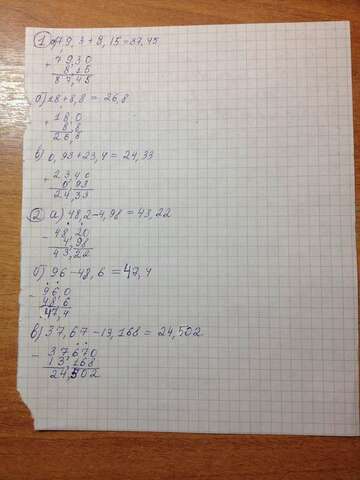 1 а) 79,3 + 8,15 = 87,45
+ 79,30
8,15
87,45
б) 18 + 8,8 = 26,8
+ 18,0
8,8
26,8
в) 0,93 + 23,4 = 24,33
+ 23,40
0,93
24,33
2 а) 48,2 - 4,98 = 43,22
- 48,20
4,98
43,22
б) 96 - 48,6 = 47,4
- 96,0
48,6
47,4
в) 37,67 - 13,168 = 24,502
- 37,670
13,168
24,502